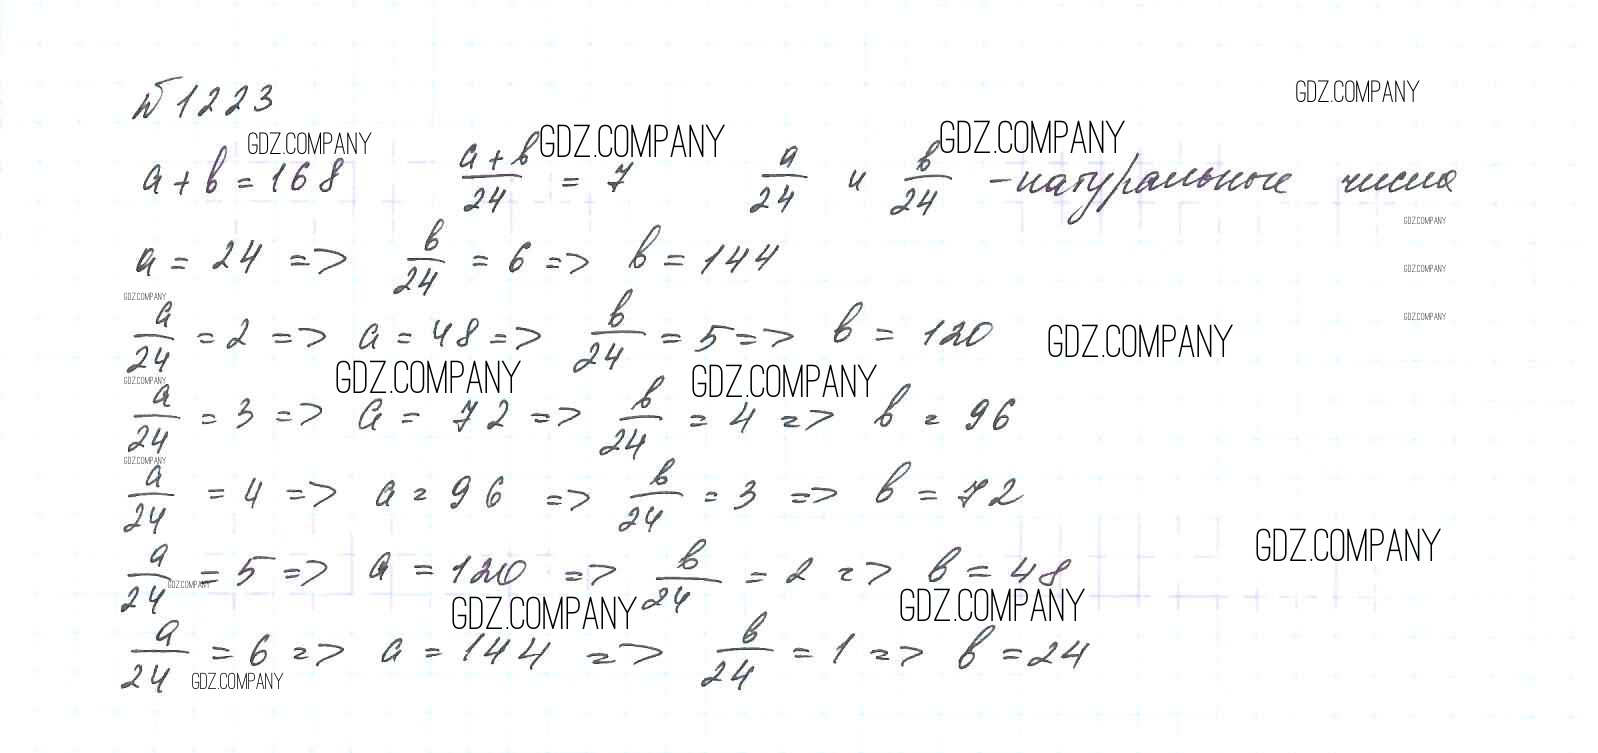 № 1223
GDZ.COMPANY
GDZ.COMPANY GDZ.COMPANY GDZ.COMPANY
a + b = 168 (a + b)/24 = 7 a/24 и b/24 - натуральные числа
GDZ.COMPANY
a = 24 => b/24 = 6 => b = 144
GDZ.COMPANY
GDZ.COMPANY
GDZ.COMPANY
a/24 = 2 => a = 48 => b/24 = 5 => b = 120
GDZ.COMPANY
GDZ.COMPANY GDZ.COMPANY GDZ.COMPANY
a/24 = 3 => a = 72 => b/24 = 4 => b = 96
GDZ.COMPANY
a/24 = 4 => a = 96 => b/24 = 3 => b = 72
GDZ.COMPANY
a/24 = 5 => a = 120 => b/24 = 2 => b = 48
GDZ.COMPANY
GDZ.COMPANY GDZ.COMPANY
a/24 = 6 => a = 144 => b/24 = 1 => b = 24
GDZ.COMPANY